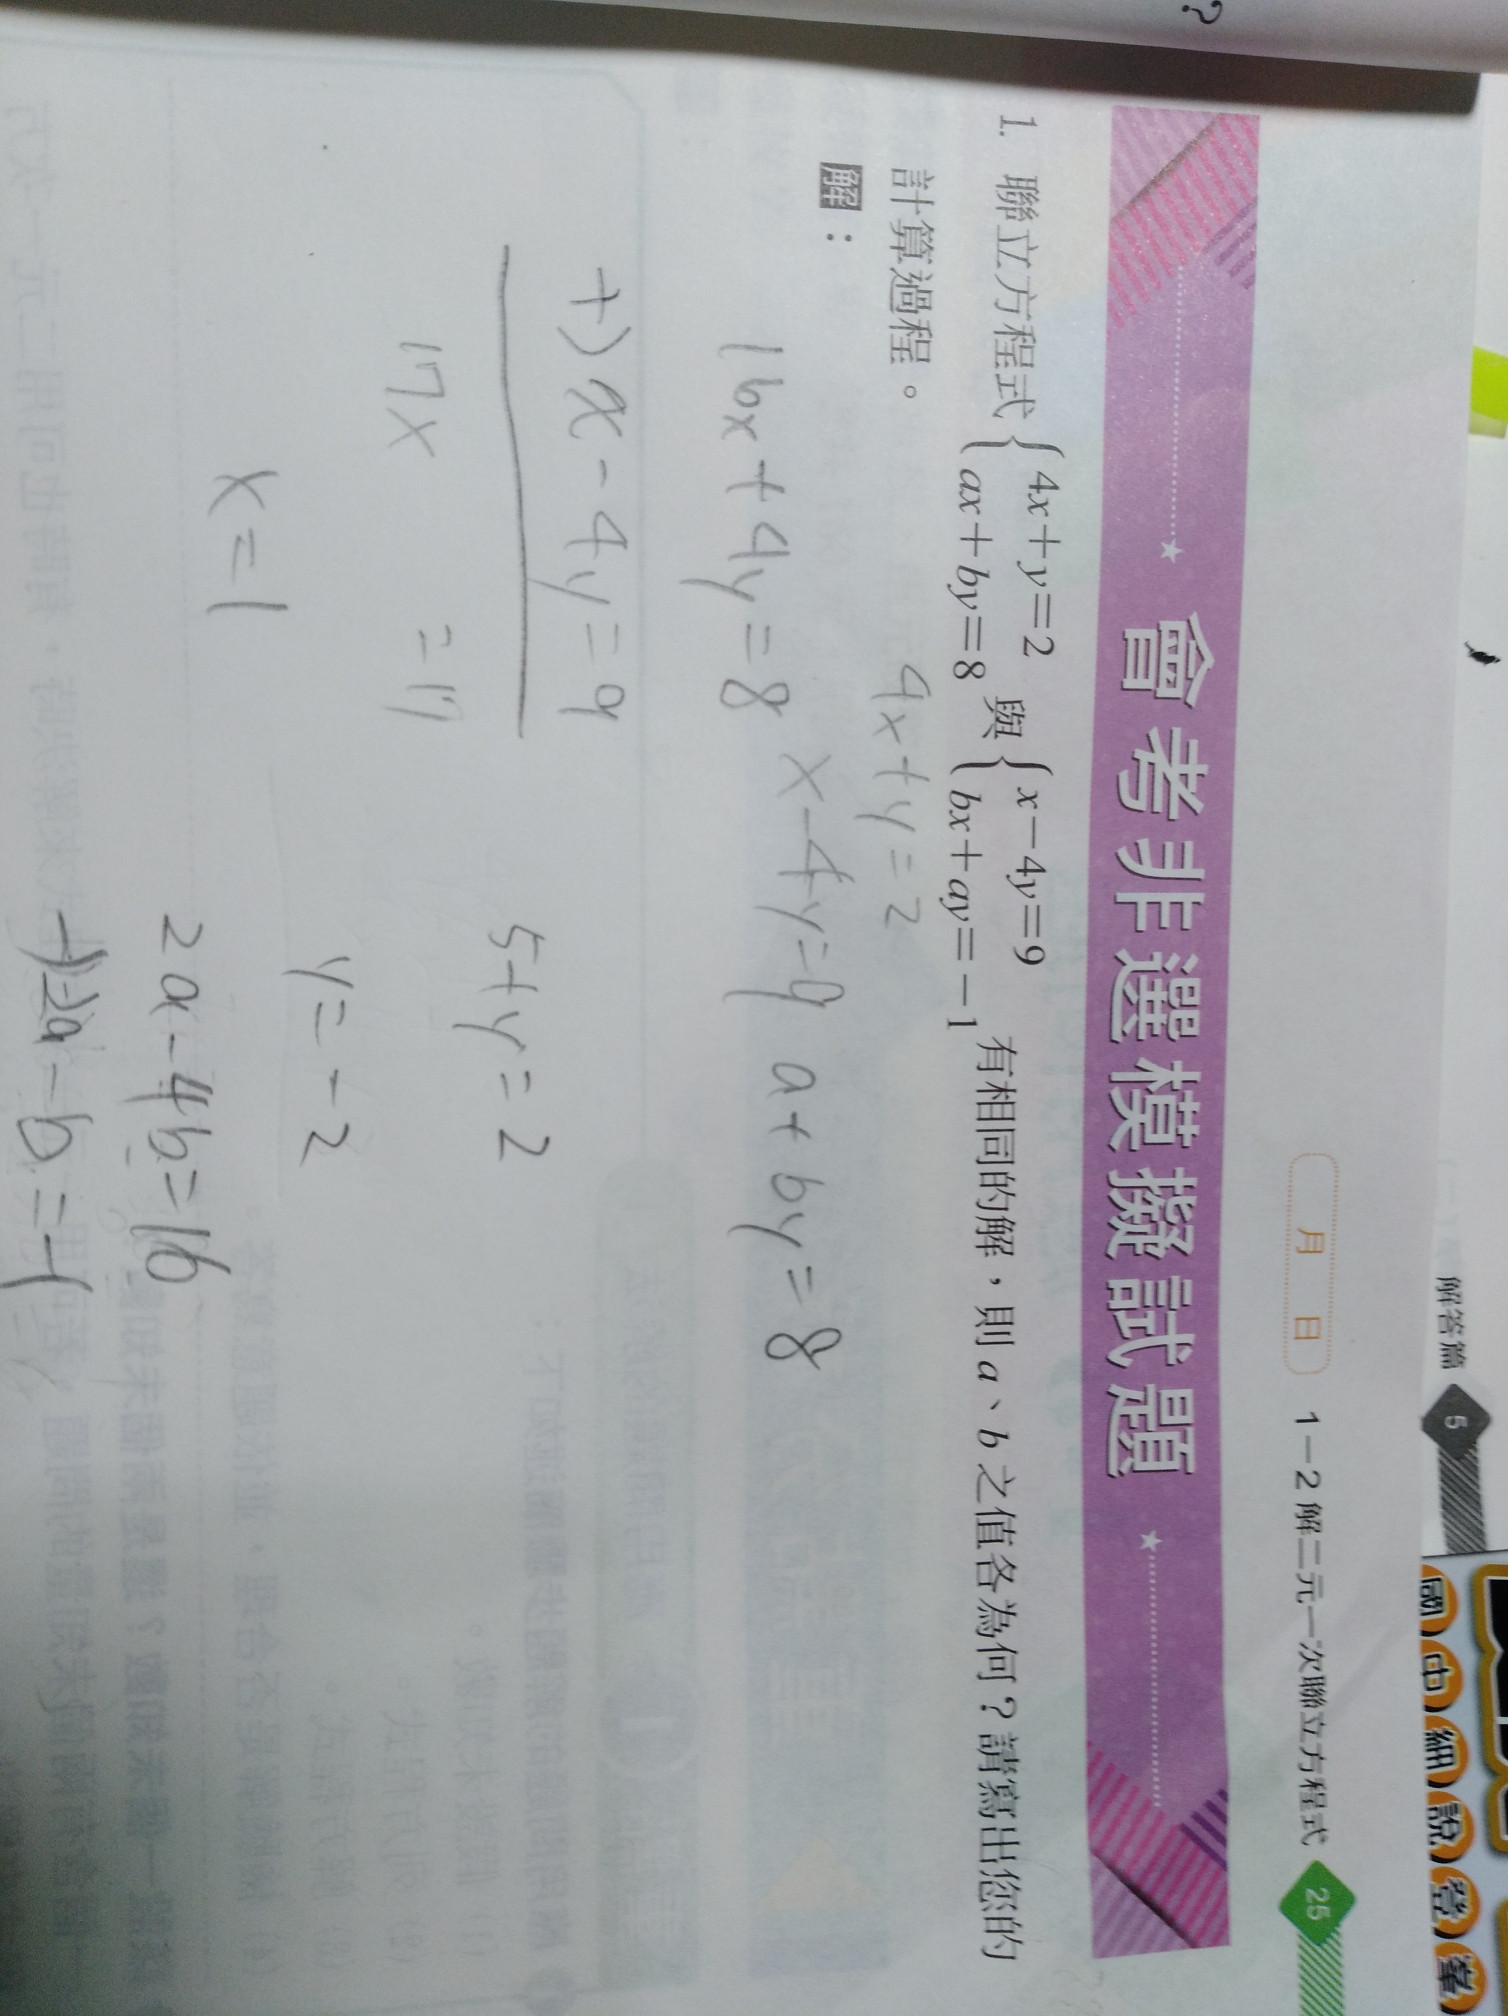 解答篇 5
國中細說登峯
月 日 1－2 解二元一次聯立方程式 25
會考非選模擬試題
1. 聯立方程式{4x＋y＝2 ax＋by＝8 與{x－4y＝9 bx＋ay＝－1 有相同的解，則 a、b 之值各為何？請寫出您的
計算過程。
解：
4x+y=2
x-4y=9 a+by=8
16x+4y=8
+) x-4y=9
17x =17
x=1
5+y=2
y=-2
2a-4b=16
-2a-b=-1